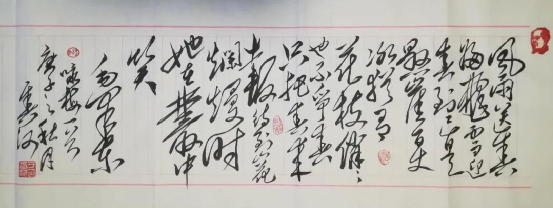 風雨送春
歸飛雪迎
春到已是
懸崖百丈
冰猶有
花枝俏俏
也不爭春
只把春來
報待到山花
爛熳时
她在叢中
笑
毛泽东
咏梅一首
庚子之秋月